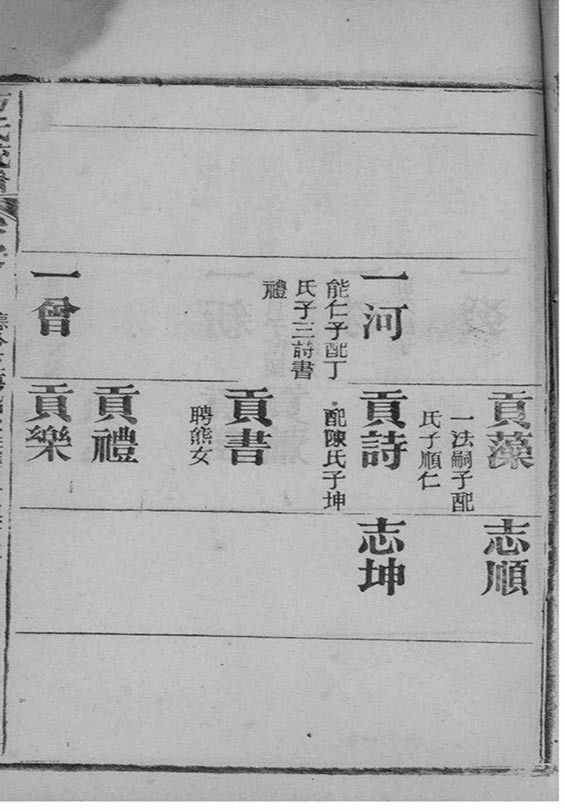 貢藻
一法嗣子配
氏子順仁
志順
一河
能仁子配丁
氏子三詩書
禮
貢詩
配陳氏子坤
志坤
貢書
聘熊女
貢禮
一曾
貢樂
氏